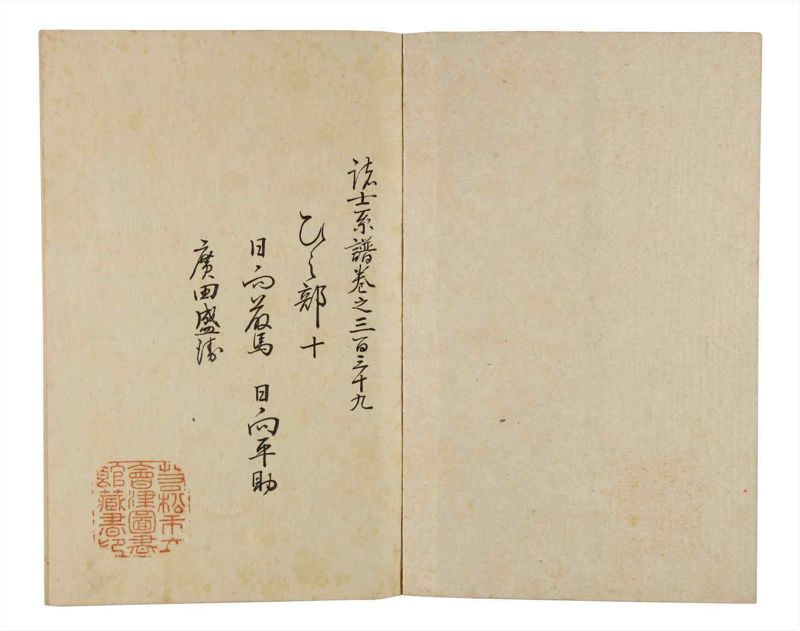 諸士系譜巻之三百三十九
ひ之部 十
日向 馬 日向平助
廣田盛
若松市立
會津圖書
館藏書印